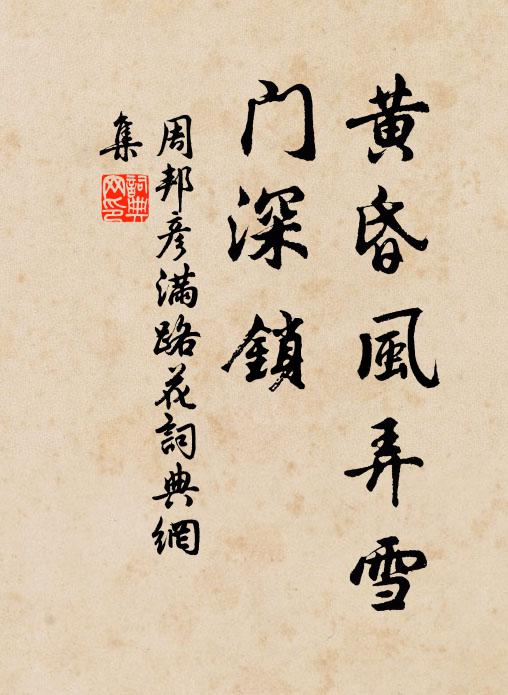 黄昏風弄雪
门深鎖
周邦彦滿路花詞典網
集
詞典
网印